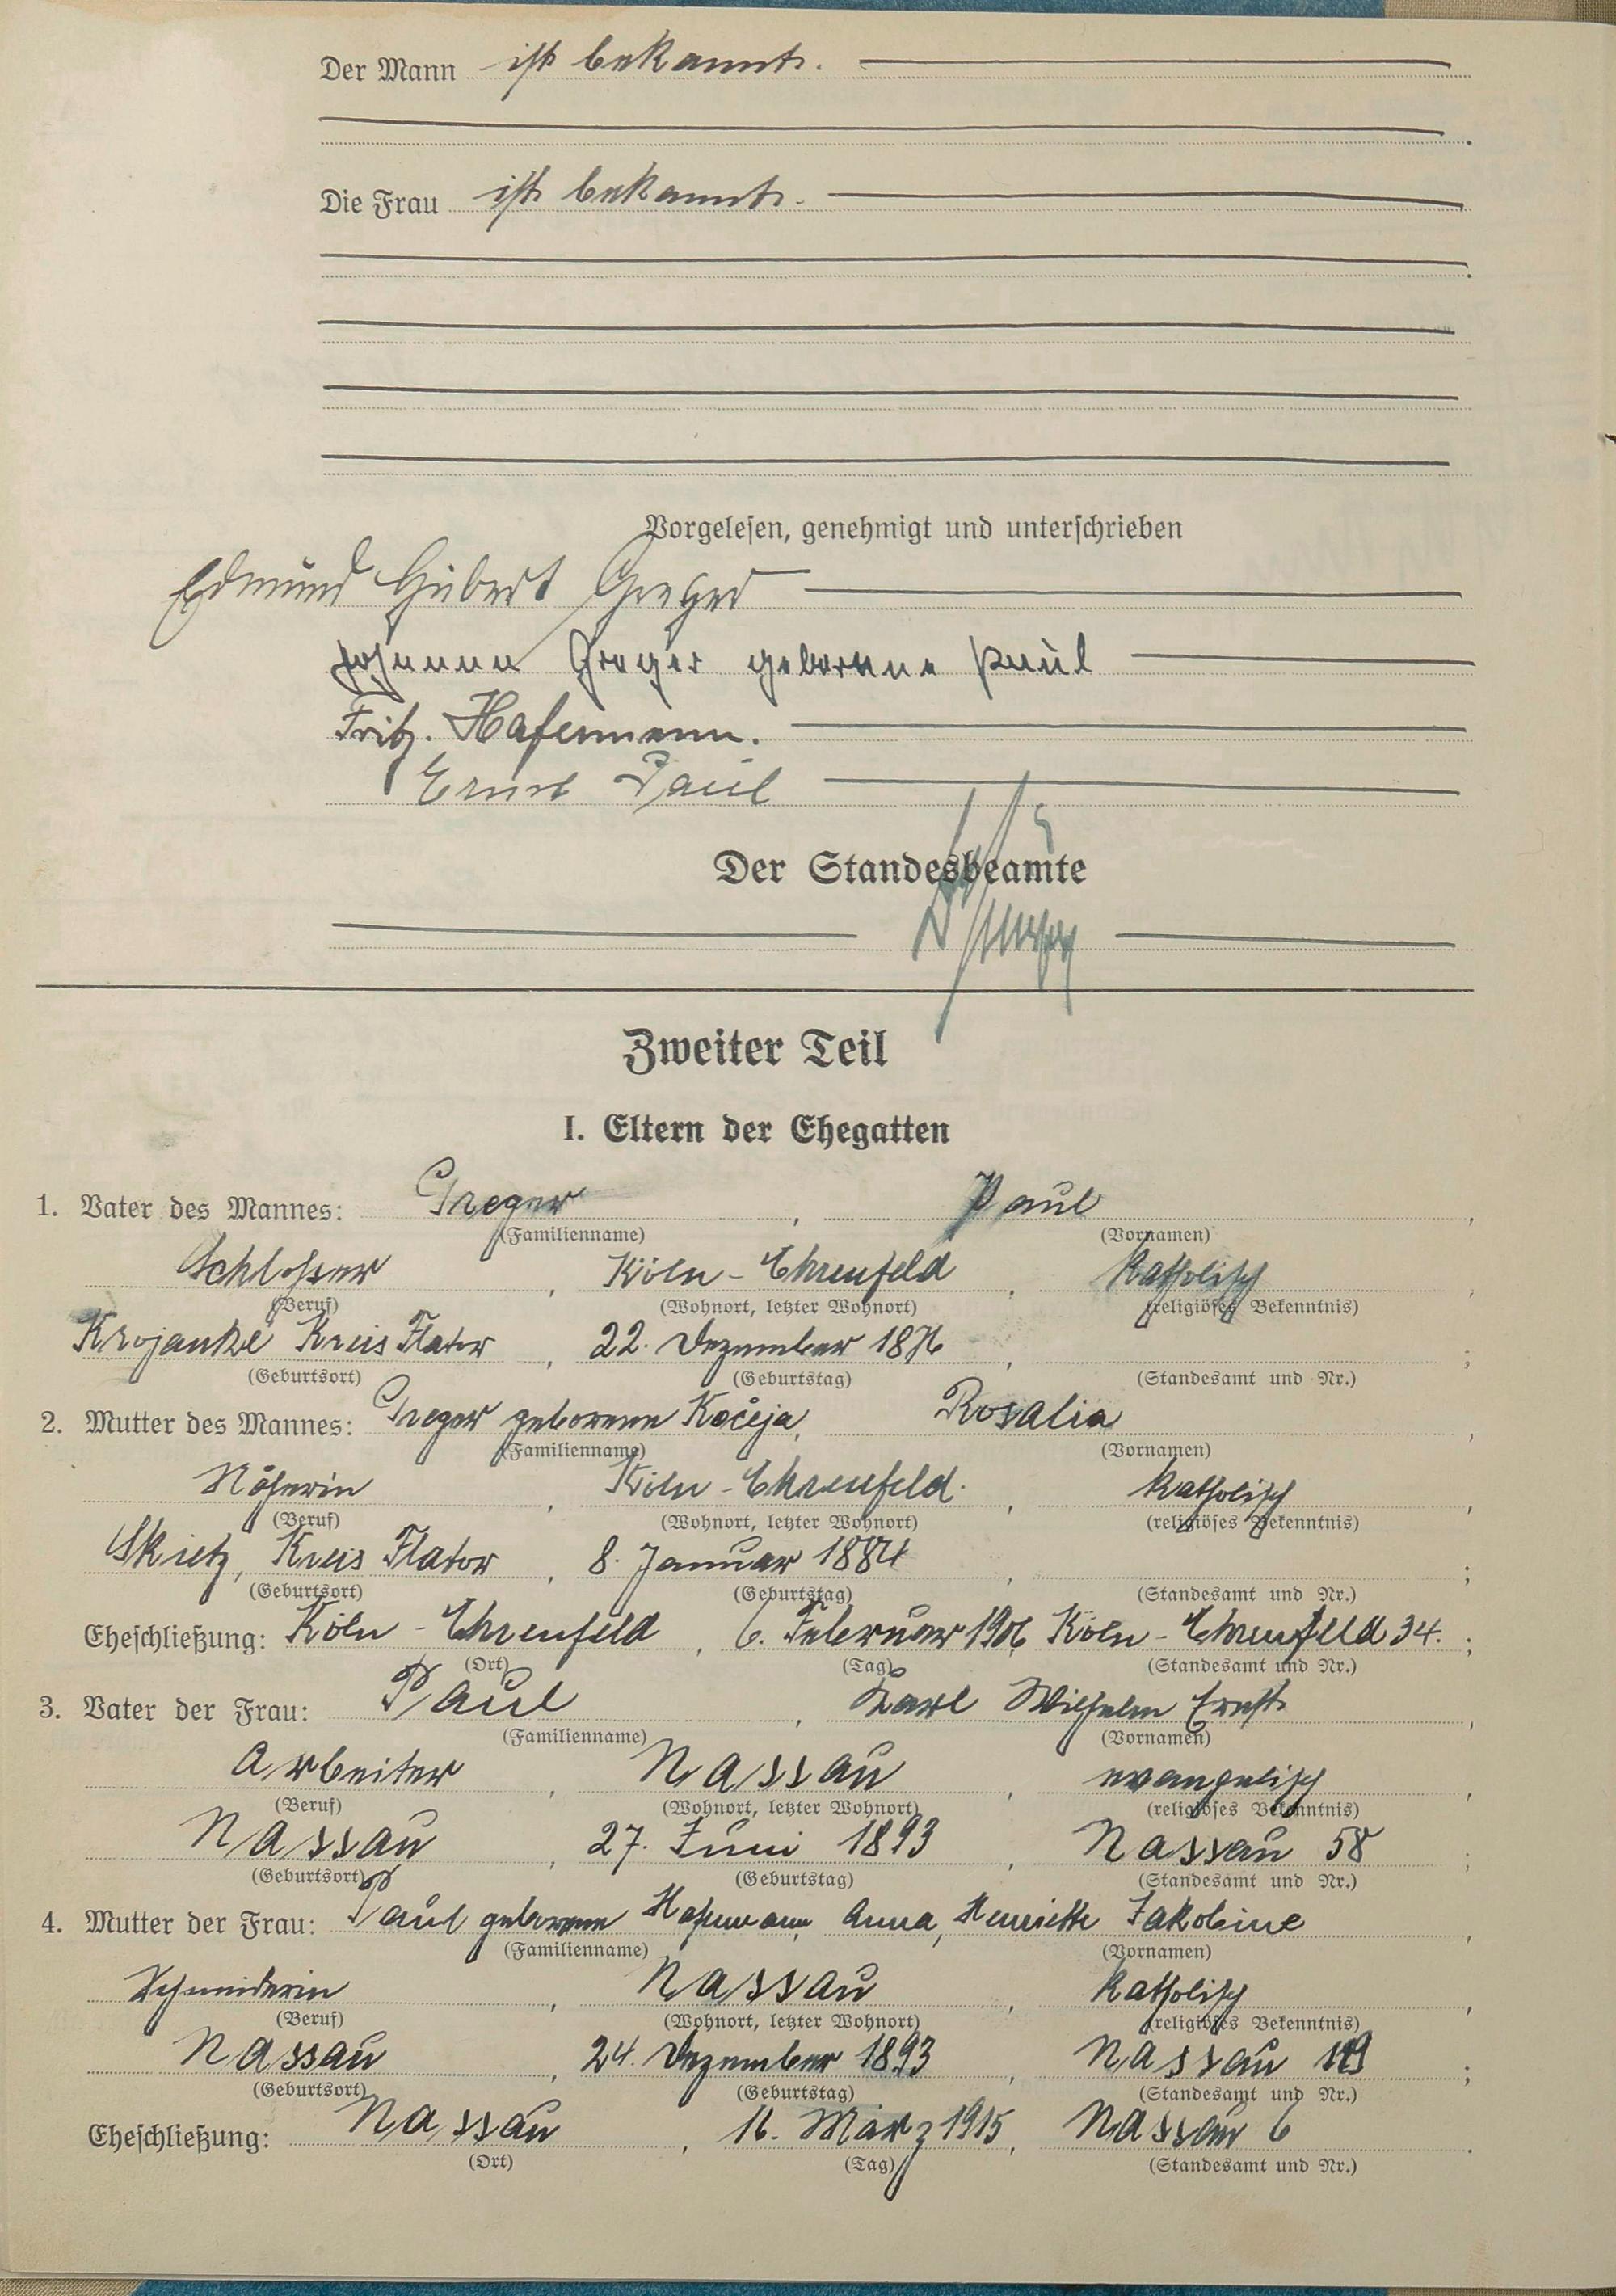 Der Mann ist bekannt.
Die Frau ist bekannt.
Vorgelesen, genehmigt und unterschrieben
Edmund Hubert Greger
Johanna Greger geborene Paul
Fritz. Hafermann.
Ernst Paul
Der Standesbeamte
Zweiter Teil
I. Eltern der Ehegatten
1. Vater des Mannes: Greger, Paul,
(Familienname) (Vornamen)
Schlosser, Köln-Ehrenfeld, katholisch,
(Beruf) (Wohnort, letzter Wohnort) (religiöses Bekenntnis)
Krojanke Kreis Flatow, 22. Dezember 1876, ;
(Geburtsort) (Geburtstag) (Standesamt und Nr.)
2. Mutter des Mannes: Greger geborene, Rosalia,
(Familienname) (Vornamen)
Näherin, Köln-Ehrenfeld, katholisch,
(Beruf) (Wohnort, letzter Wohnort) (religiöses Bekenntnis)
Skietz, Kreis Flatow, 8. Januar 1884, ;
(Geburtsort) (Geburtstag) (Standesamt und Nr.)
Eheschließung: Köln-Ehrenfeld, 6. Februar 1906, Köln-Ehrenfeld 34. ;
(Ort) (Tag) (Standesamt und Nr.)
3. Vater der Frau: Paul, Karl Wilhelm Ernst,
(Familienname) (Vornamen)
Arbeiter, Nassau, evangelisch,
(Beruf) (Wohnort, letzter Wohnort) (religiöses Bekenntnis)
Nassau, 27. Juni 1893, Nassau 58 ;
(Geburtsort) (Geburtstag) (Standesamt und Nr.)
4. Mutter der Frau: Paul geborene, Anna, Henriette Jakobine,
(Familienname) (Vornamen)
Schneiderin, Nassau, katholisch,
(Beruf) (Wohnort, letzter Wohnort) (religiöses Bekenntnis)
Nassau, 24. Dezember 1893, Nassau ;
(Geburtsort) (Geburtstag) (Standesamt und Nr.)
Eheschließung: Nassau, 16. März 1915, Nassau 6.
(Ort) (Tag) (Standesamt und Nr.)